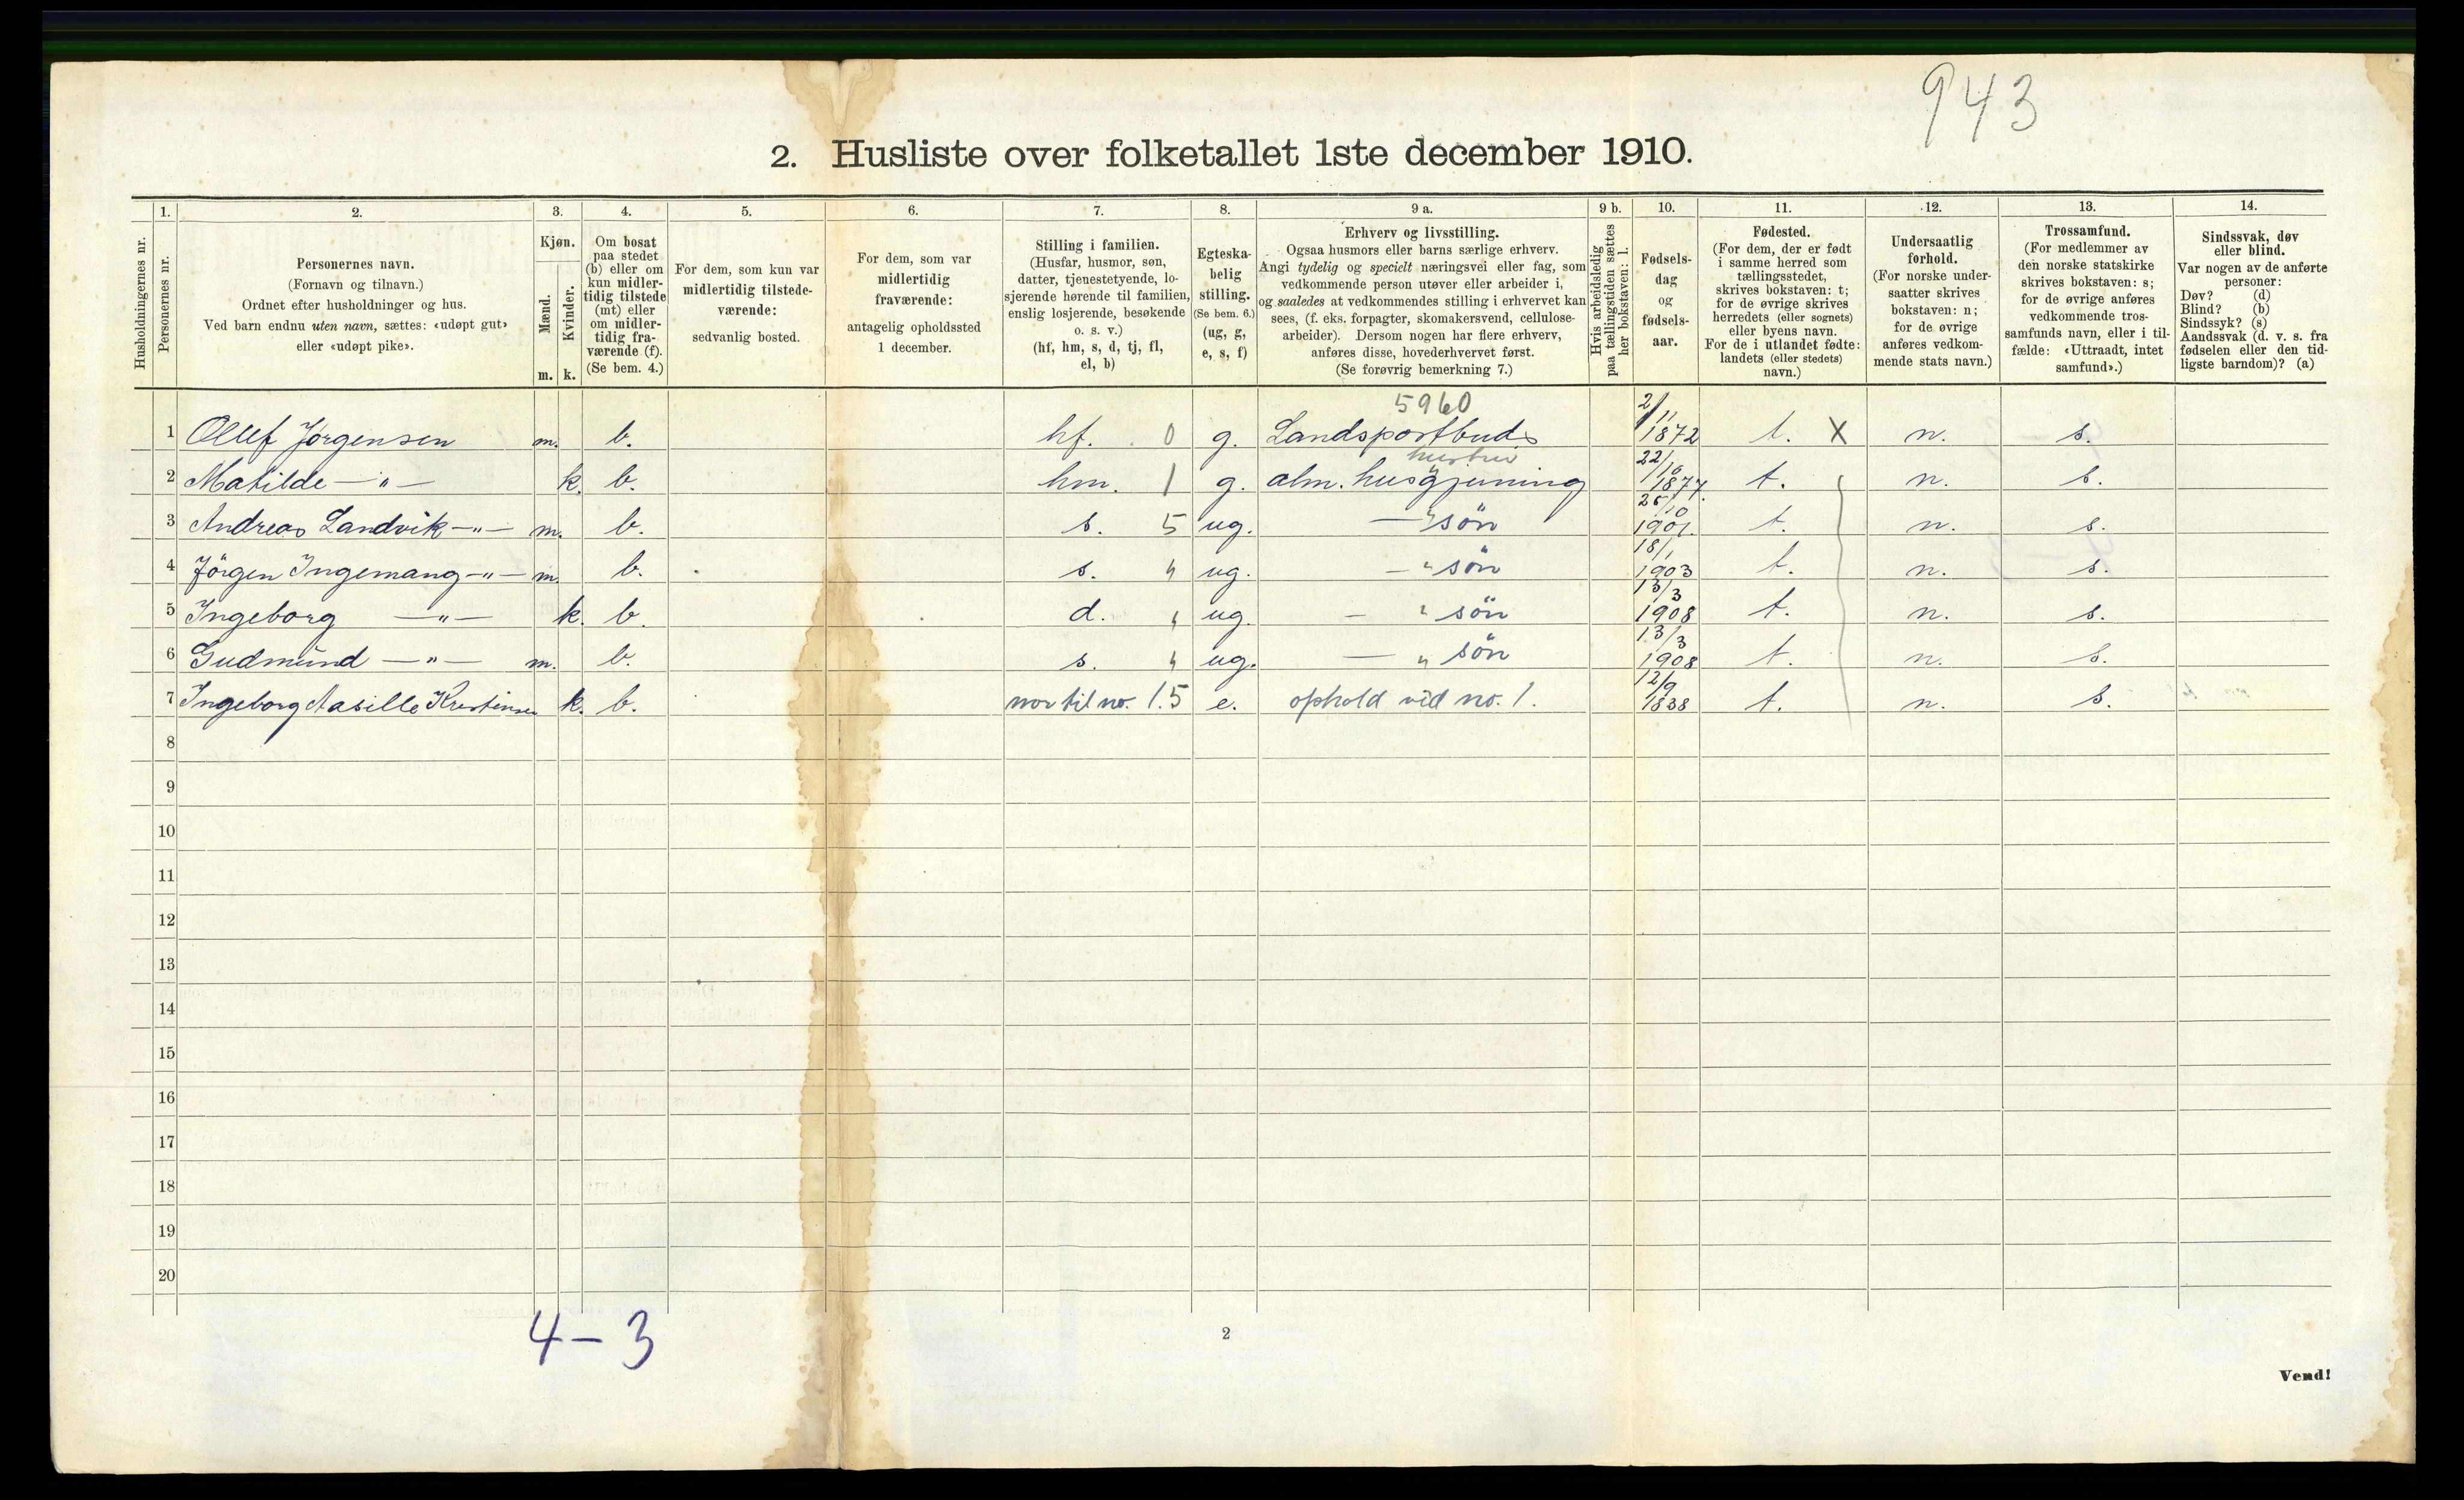 943
2. Husliste over folketallet 1ste december 1910.
1. 2. 3. 4. 5. 6. 7. 8. 9 a. 9 b. 10. 11. 12. 13. 14.
Husholdningernes nr.
Personernes nr.
Personernes navn.
(Fornavn og tilnavn.)
Ordnet efter husholdninger og hus.
Ved barn endnu uten navn, sættes: «udøpt gut»
eller «udøpt pike».
Kjøn.
Mænd.
Kvinder.
m. k.
Om bosat
paa stedet
(b) eller om
kun midler-
tidig tilstede
(mt) eller
om midler-
tidig fra-
værende (f).
(Se bem. 4.)
For dem, som kun var
midlertidig tilstede-
værende:
sedvanlig bosted.
For dem, som var
midlertidig
fraværende:
antagelig opholdssted
1 december.
Stilling i familien.
(Husfar, husmor, søn,
datter, tjenestetyende, lo-
sjerende hørende til familien,
enslig losjerende, besøkende
o. s. v.)
(hf, hm, s, d, tj, fl,
el, b)
Egteska-
belig
stilling.
(Se bem. 6.)
(ug, g,
e, s, f)
Erhverv og livsstilling.
Ogsaa husmors eller barns særlige erhverv.
Angi tydelig og specielt næringsvei eller fag, som
vedkommende person utøver eller arbeider i,
og saaledes at vedkommendes stilling i erhvervet kan
sees, (f. eks. forpagter, skomakersvend, cellulose-
arbeider). Dersom nogen har flere erhverv,
anføres disse, hovederhvervet først.
(Se forøvrig bemerkning 7.)
Hvis arbeidsledig
paa tællingstiden sættes
her bokstaven: l.
Fødsels-
dag
og
fødsels-
aar.
Fødested.
(For dem, der er født
i samme herred som
tællingsstedet,
skrives bokstaven: t;
for de øvrige skrives
herredets (eller sognets)
eller byens navn.
For de i utlandet fødte:
landets (eller stedets)
navn.)
Undersaatlig
forhold.
(For norske under-
saatter skrives
bokstaven: n;
for de øvrige
anføres vedkom-
mende stats navn.)
Trossamfund.
(For medlemmer av
den norske statskirke
skrives bokstaven: s;
for de øvrige anføres
vedkommende tros-
samfunds navn, eller i til-
fælde: «Uttraadt, intet
samfund».)
Sindssvak, døv
eller blind.
Var nogen av de anførte
personer:
Døv? (d)
Blind? (b)
Sindssyk? (s)
Aandssvak (d. v. s. fra
fødselen eller den tid-
ligste barndom)? (a)
5960
1 Olluf Jørgensen m. b. hf. 0 g. Landspostbud 2/11 1872 t. X n. s.
hustru
2 Matilde —"— k. b. hm. 1 g. alm. husgjerning 22/10 1877. t. n. s.
3 Andreas Landvik —"— m. b. s. 5 ug. — " søn 25/10 1901. t. n. s.
4 Jörgen Ingemang —"— m. b. s. " ug. — " søn 18/1 1903 t. n. s.
5 Ingeborg —"— k. b. d. " ug. — " søn 13/3 1908 t. n. s.
6 Gudmund —"— m. b. s. " ug. — " søn 13/3 1908 t. n. s.
7 Ingeborg Aasille k. b. mor til no. 1. 5 e. ophold vid no. 1. 12/9 1838 t. n. s.
8
9
10
11
12
13
14
15
16
17
18
19
20
4 — 3
2
Vend!